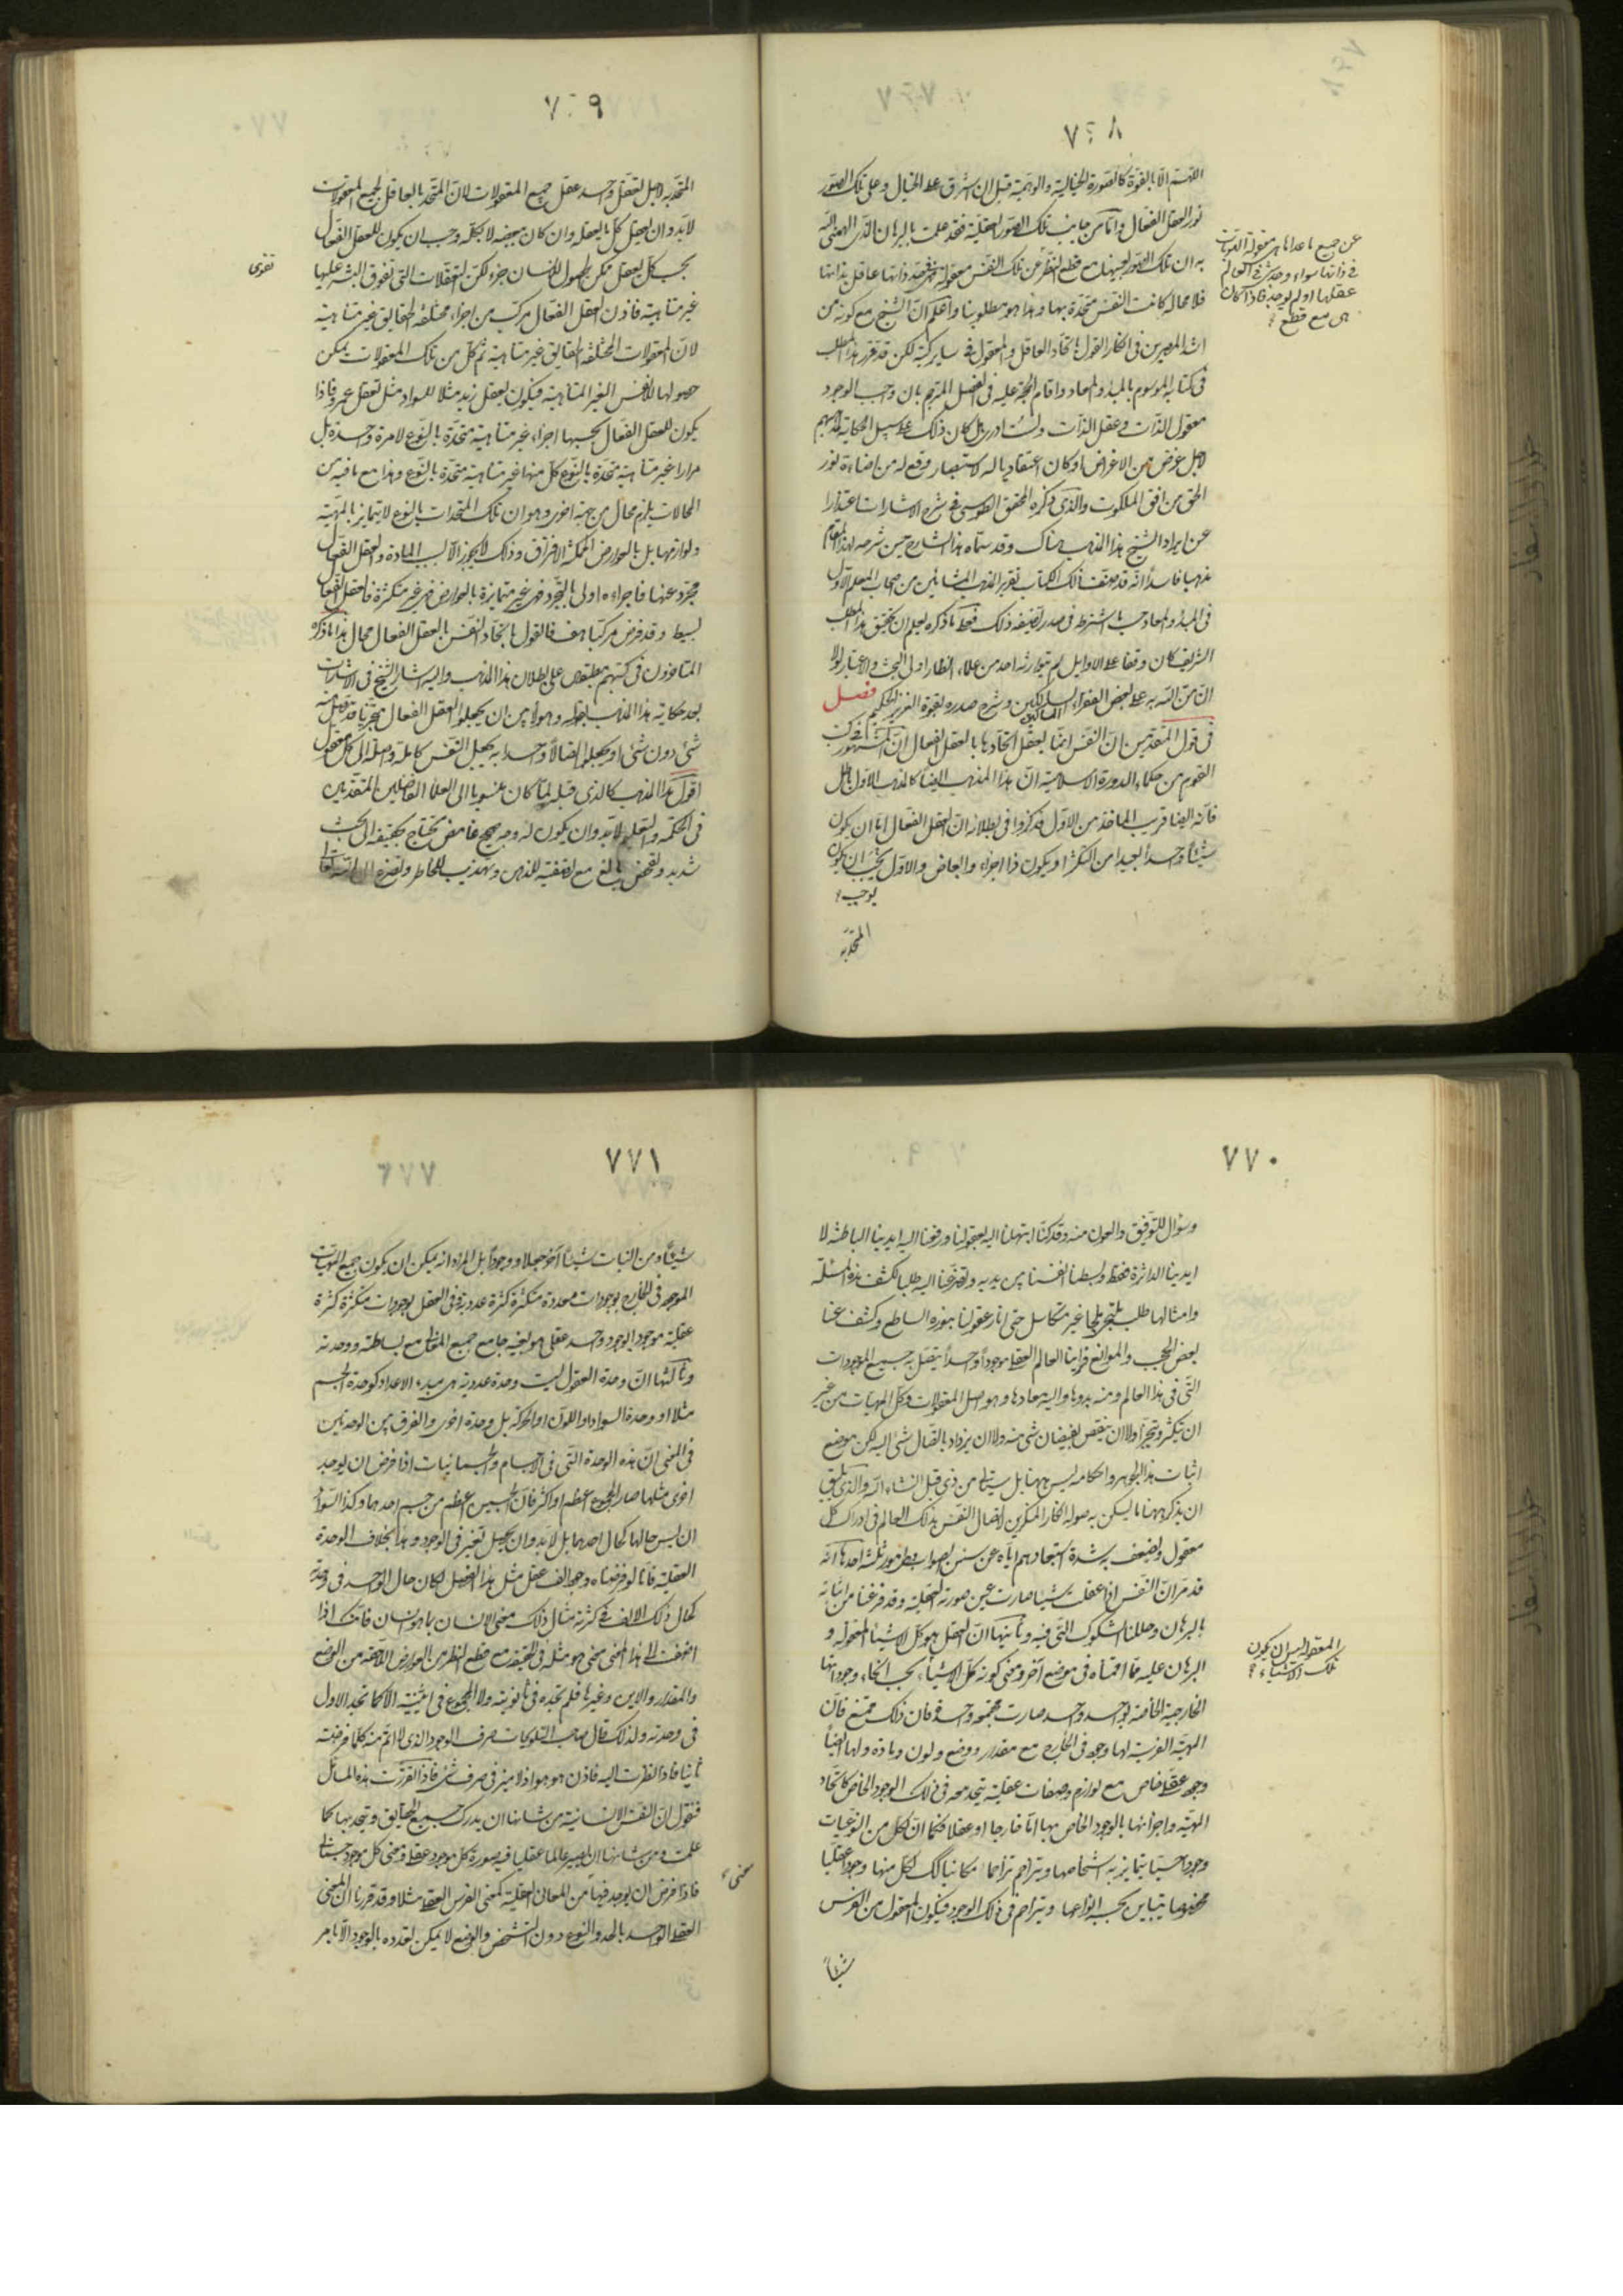 ٧٦٨
اللهم الا بالقوة كالصورة الخيالية والوهمية قبل ان اشرق على الخيال وعلى تلك الصور
نور العقل الفعال واما من جانب تلك الصور العقلية فقد علمت بالبرهان الذى الهمنى الله
به ان تلك الصور بعينها مع قطع النظر عن تلك النفس معقولة فى حد ذاتها عاقل بذاتها
فلا محالة كانت النفس متحدة بها وهذا هو مطلوبنا واعلم ان الشيخ مع كونه من
اشد المصرين فى انكار القول باتحاد العاقل والمعقول فى ساير كتبه لكن قد قرر هذا المطلب
فى كتابه الموسوم بالمبدء والمعاد واقام الحجة عليه فى الفصل المترجم بان واجب الوجود
معقول الذات وعقل الذات ولست ادرى هل كان ذلك على سبيل الحكاية لمذهبهم
لاجل غرض من الاغراض او كان اعتقاديا له لاستبصار وقع له من اضاءة نور
الحق من افق الملكوت والذى ذكره المحقق الطوسى فى شرح الاشارات اعتذارا
عن ايراد الشيخ هذا المذهب هناك وقد سماه هذا الشارح حين شرحه لهذا المقام
مذهبا فاسدا انه قد صنف ذلك الكتاب تقريرا لمذهب المشائين من اصحاب المعلم الاول
فى المبدء والمعاد حسب ما اشترطه فى صدر تصنيفه ذلك فحكى ما ذكره ليعلم ان تحقيق هذا المطلب
الشريف كان وقفا على الاوايل لم يتوارثه احد من علماء انظار اولى البحث والاعتبار لولا
ان من الله به على بعض الفقراء المساكين وشرح صدره بقوة العزيز الحكيم فصل
فى قول المتقدمين ان النفس انما تعقل باتحادها بالعقل الفعال ان المشهور فى كتب
القوم من حكماء الدورة الاسلامية ان هذا المذهب ايضا كالمذهب الاول باطل
فانه ايضا قريب المأخذ من الاول فذكروا فى بطلانه ان العقل الفعال اما ان يكون
شيئا واحدا بعيدا من التكثر او يكون ذا اجزاء وابعاض والاول يجب ان يكون
يوجب
المتحد به
عن جميع ما عداها هى معقولة الهويات
فى ذاتها سواء وجد شىء فى العالم
عقلها او لم يوجد فاذا كان
هى مع قطع
٧٦٩
المتحد به لاجل تعقل واحد عقل جميع المعقولات لان المتحد بالعاقل لجميع المعقولات
لابد وان يعقل كل ما يعقله وان كان ببعضه لا بكله وجب ان يكون للعقل الفعال
بحسب كل تعقل ممكن الحصول للانسان جزء لكن التعقلات التى تقوى البشر عليها
غير متناهية فاذن العقل الفعال مركب من اجزاء مختلفة الحقايق غير متناهية
لان المعقولات المختلفة الحقايق غير متناهية ثم كل من تلك المعقولات يمكن
حصولها للانفس الغير المتناهية فيكون تعقل زيد مثلا للسواد مثل تعقل عمرو فاذا
يكون للعقل الفعال بحسبها اجزاء غير متناهية متحدة بالنوع لا مرة واحدة بل
مرارا غير متناهية متحدة بالنوع كل منها غير متناهية متحدة بالنوع وهذا مع ما فيه من
المحالات يلزم محال من جهة اخرى وهو ان تلك المتحدات بالنوع لا يتمايز بالمهية
ولوازمها بل بالعوارض الممكنة الافتراق وذلك لا يجوز الا بسبب المادة والعقل الفعال
مجرد عنها فاجزاءه اولى بالتجرد فهى غير متمايزة بالعوارض فهى غير متكثرة فالعقل الفعال
بسيط وقد فرض مركبا هف فالقول باتحاد النفس بالعقل الفعال محال هذا ما ذكره
المتاخرون فى كتبهم مطبقين على بطلان هذا المذهب واليه اشار الشيخ فى الاشارات
بعد حكاية هذا المذهب بقوله وهؤلاء بين ان يجعلوا العقل الفعال متجزيا قد يتصل منه
شئ دون شئ او يجعلوا اتصالا واحدا به يجعل النفس كاملة واصلة الى كل معقول
اقول هذا المذهب كالذى قبله لما كان منسوبا الى العلماء الفاضلين المتقدمين
فى الحكمة والتعليم لابد وان يكون له وجه صحيح غامض يحتاج تحقيقه الى بحث
شديد وتفحص بالغ مع تصفية للذهن وتهذيب للخاطر وتضرع الى الله تعالى
تقوى
٧٧٠
وسؤال للتوفيق والعون منه وقد كنا ابتهلنا اليه بعقولنا ورفعنا اليه ايدينا الباطنة لا
ايدينا الداثرة فقط وبسطنا انفسنا بين يديه وتضرعنا اليه طلبا لكشف هذه المسئلة
وامثالها طلب ملتجئ ملجأ غير متكاسل حتى انار عقولنا بنوره الساطع وكشف عنا
بعض الحجب والموانع فراينا العالم العقلى موجودا واحدا يتصل به جميع الموجودات
التى فى هذا العالم ومنه بدوها واليه معادها وهو اصل المعقولات وكل المهيات من غير
ان يتكثر ويتجزأ ولا ان ينقص بفيضان شئ منه ولا ان يزداد باتصال شئ اليه لكن موضع
اثبات هذا الجوهر واحكامه ليس ههنا بل سيأتى من ذى قبل انشاء الله والذى يليق
ان يذكر ههنا ما يسكن به صولة انكار المنكرين لاتصال النفس بذلك العالم فى ادراك كل
معقول ويضعف به شدة استبعادهم اياه عن سنن الصواب هو امور ثلثة احدها انه
قد مر ان النفس اذا عقلت شيئا صارت عين صورته العقلية وقد فرغنا من اثباته
بالبرهان وحللنا الشكوك التى فيه وثانيها ان العقل هو كل الاشياء المعقولة و
البرهان عليه مما اقمناه فى موضع آخر ومعنى كونه كل الاشياء بحسب انحاء وجوداتها
الخارجية الخاصة بواحد واحد صارت مجتمعة واحدة فان ذلك ممتنع فان
المهية الفرسية لها وجود فى الخارج مع مقدار ووضع ولون ومادة ولها ايضا
وجود عقلى خاص مع لوازم وصفات عقلية يتحد معه فى ذلك الوجود الخاص كاتحاد
المهية واجزائها بالوجود الخاص بها اما خارجا او عقلا فكما ان لكل من النوعيات
وجودا حسيا يتمايز به اشخاصها ويتزاحم تزاحما مكانيا كذلك لكل منها وجودا عقليا
مخصوصا يتباين بحسبه انواعها ويتزاحم فى ذلك الوجود فيكون المعقول من الفرس
شيئا
المعقولة ليس ان يكون
تلك الاشياء
٧٧١
شيئا ومن النبات شيئا آخر جعلا ووجودا بل المراد انه يمكن ان يكون جميع المهيات
الموجودة فى الخارج بوجودات متعددة متكثرة كثرة عددية وفى العقل بوجودات متكثرة كثرة
عقلية موجودا بوجود واحد عقلى هو بعينه جامع جميع المعانى مع بساطته ووحدته
وثالثها ان وحدة العقول ليست وحدة عددية هى مبدء الاعداد كوحدة الجسم
مثلا او وحدة السواد او اللون او الحركة بل وحدة اخرى والفرق بين الوحدتين
فى المعنى ان هذه الوحدة التى فى الاجسام والجسمانيات اذا فرض ان يوجد
اخرى مثلها صار المجموع اعظم او اكثر فان الجسمين اعظم من جسم احدهما وكذا السوادان
ان ليس حالهما كحال احدهما بل لابد وان يحصل تغير فى الوجود وهذا بخلاف الوحدة
العقلية فانا لو فرضنا وجود الف عقل مثل هذا العقل لكان حال الواحد فى وحدته
كحال ذلك الالف فى كثرته مثال ذلك معنى الانسان بما هو انسان فانك اذا
اضفت الى هذا المعنى معنى هو مثله فى الحقيقة مع قطع النظر من العوارض اللاحقة من الوضع
والمقدار والاين وغيرها فلم تجده فى ثانويته ولا المجموع فى اثنينيته الا كما تجد الاول
فى وحدته ولذلك قال صاحب التلويحات صرف الوجود الذى لا اتم منه كلما فرضته
ثانيا فاذا نظرت اليه فاذن هو هو اذ لا ميز فى صرف شئ فاذا تقررت هذه المسائل
فنقول ان النفس الانسانية من شانها ان يدرك جميع الحقايق ويتحد بها كما
علمت ومن شانها ان يصير عالما عقليا فيه صورة كل موجود عقلى ومعنى كل موجود جسمانى
فاذا فرض ان يوجد فيها من المعانى العقلية كمعنى الفرس العقلى مثلا وقد قررنا ان المعنى
العقلى الواحد بالحد والنوع دون التشخص والوضع لا يمكن تعدده بالوجود الا بامر
معنى